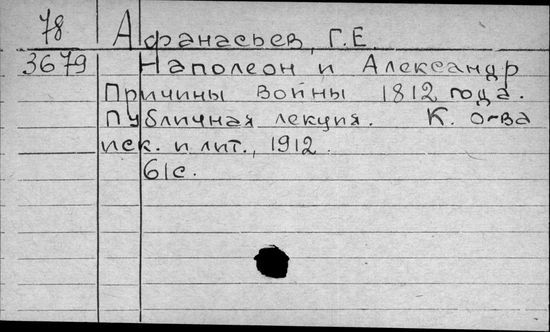 78 Афанасьев, Г.Е.
3679 Наполеон и Александр
Причины войны 1812 года.
Публичная лекция. К. о-ва
иск. и лит., 1912.
61с.